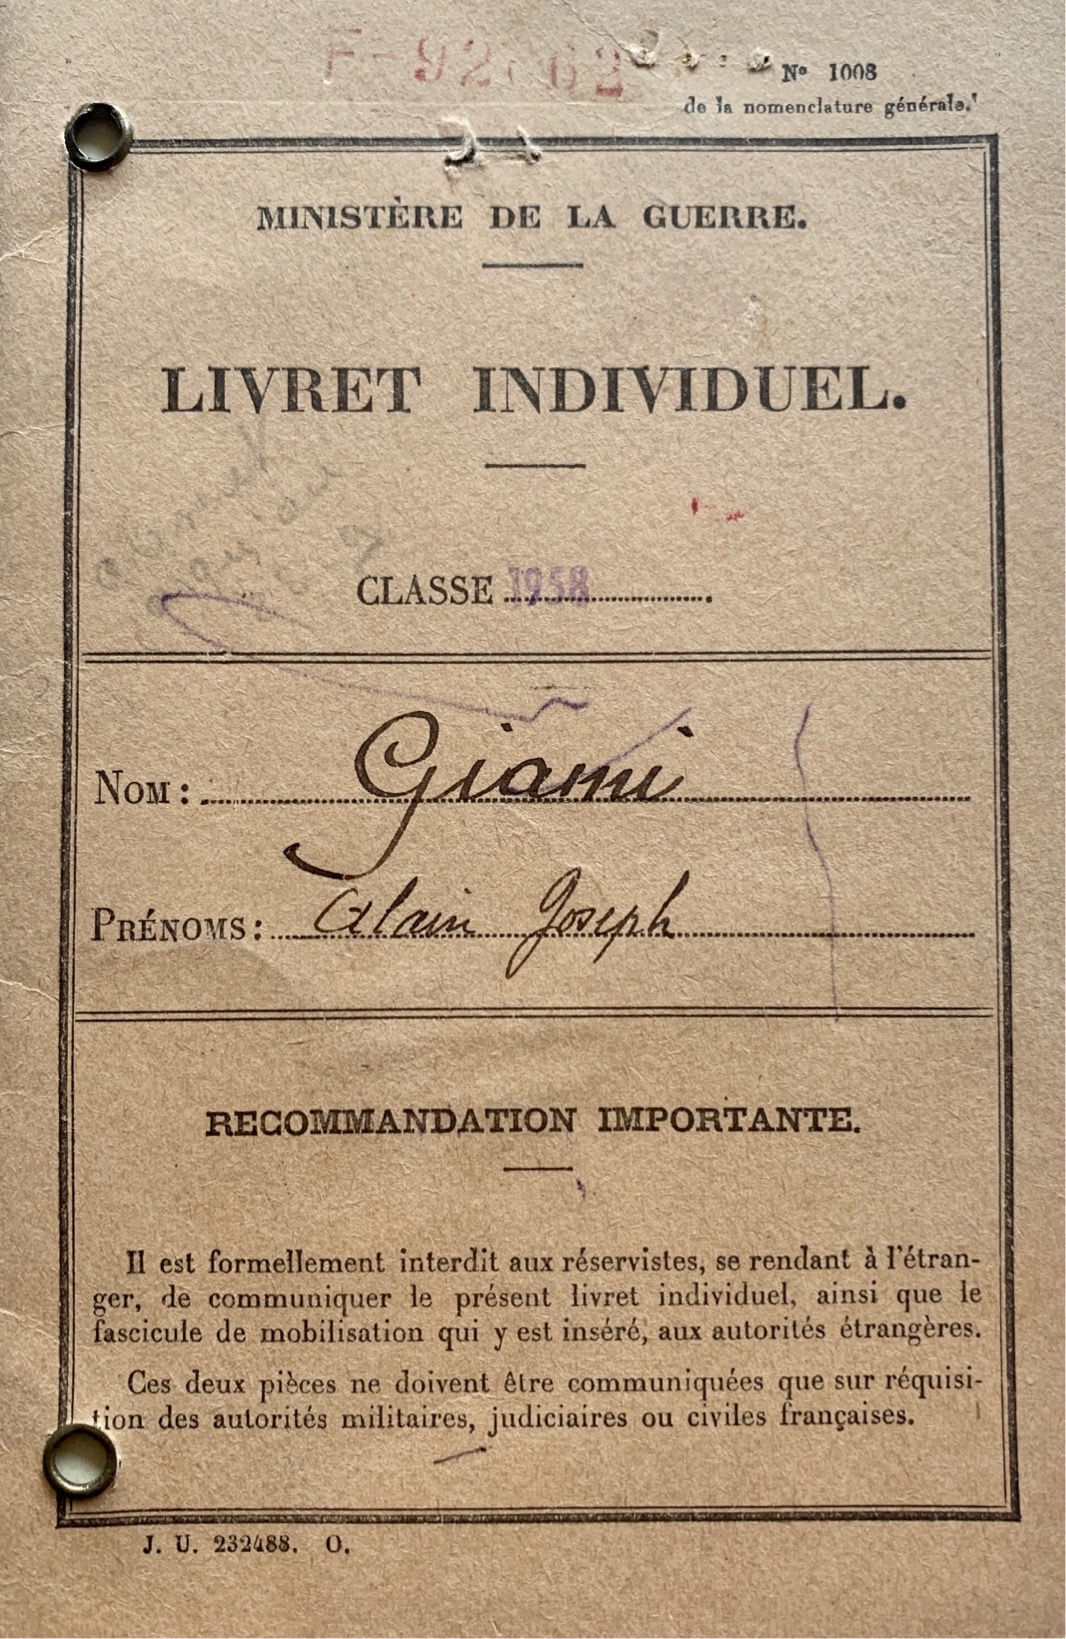 F-92.62
N° 1008
de la nomenclature générale.
MINISTÈRE DE LA GUERRE.
LIVRET INDIVIDUEL.
CLASSE 1958
NOM : Giami
PRÉNOMS : Alain Joseph
RECOMMANDATION IMPORTANTE.
Il est formellement interdit aux réservistes, se rendant à l'étran-
ger, de communiquer le présent livret individuel, ainsi que le
fascicule de mobilisation qui y est inséré, aux autorités étrangères.
Ces deux pièces ne doivent être communiquées que sur réquisi-
tion des autorités militaires, judiciaires ou civiles françaises.
J. U. 232488. O.